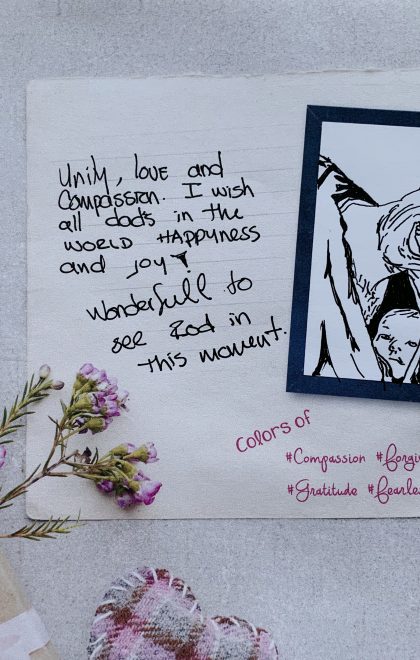 Unity, love and
Compassion. I wish
all dads in the
WORLD HAPPYNESS
and joy!
Wonderfull to
see God in
this moment.
Colors of
#Compassion #forgiv
#Gratitude #fearle